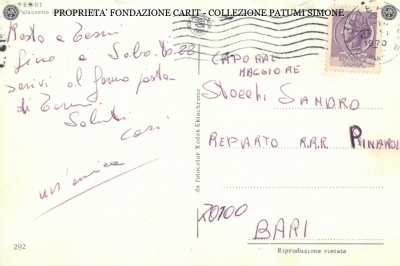 TERNI
PROPRIETA' FONDAZIONE CARIT - COLLEZIONE PATUMI SIMONE
1970
Resto a Terni
fino a Sabato 22
scrivi al fermo posta
di Terni.
Saluti
cari
un'amica
CAPORAL
MAGGIORE
Stocchi SANDRO
REPARTO R.R.R PINEROLO
70100
BARI
da fotocolor Kodak Ektachrome
292
Riproduzione vietata